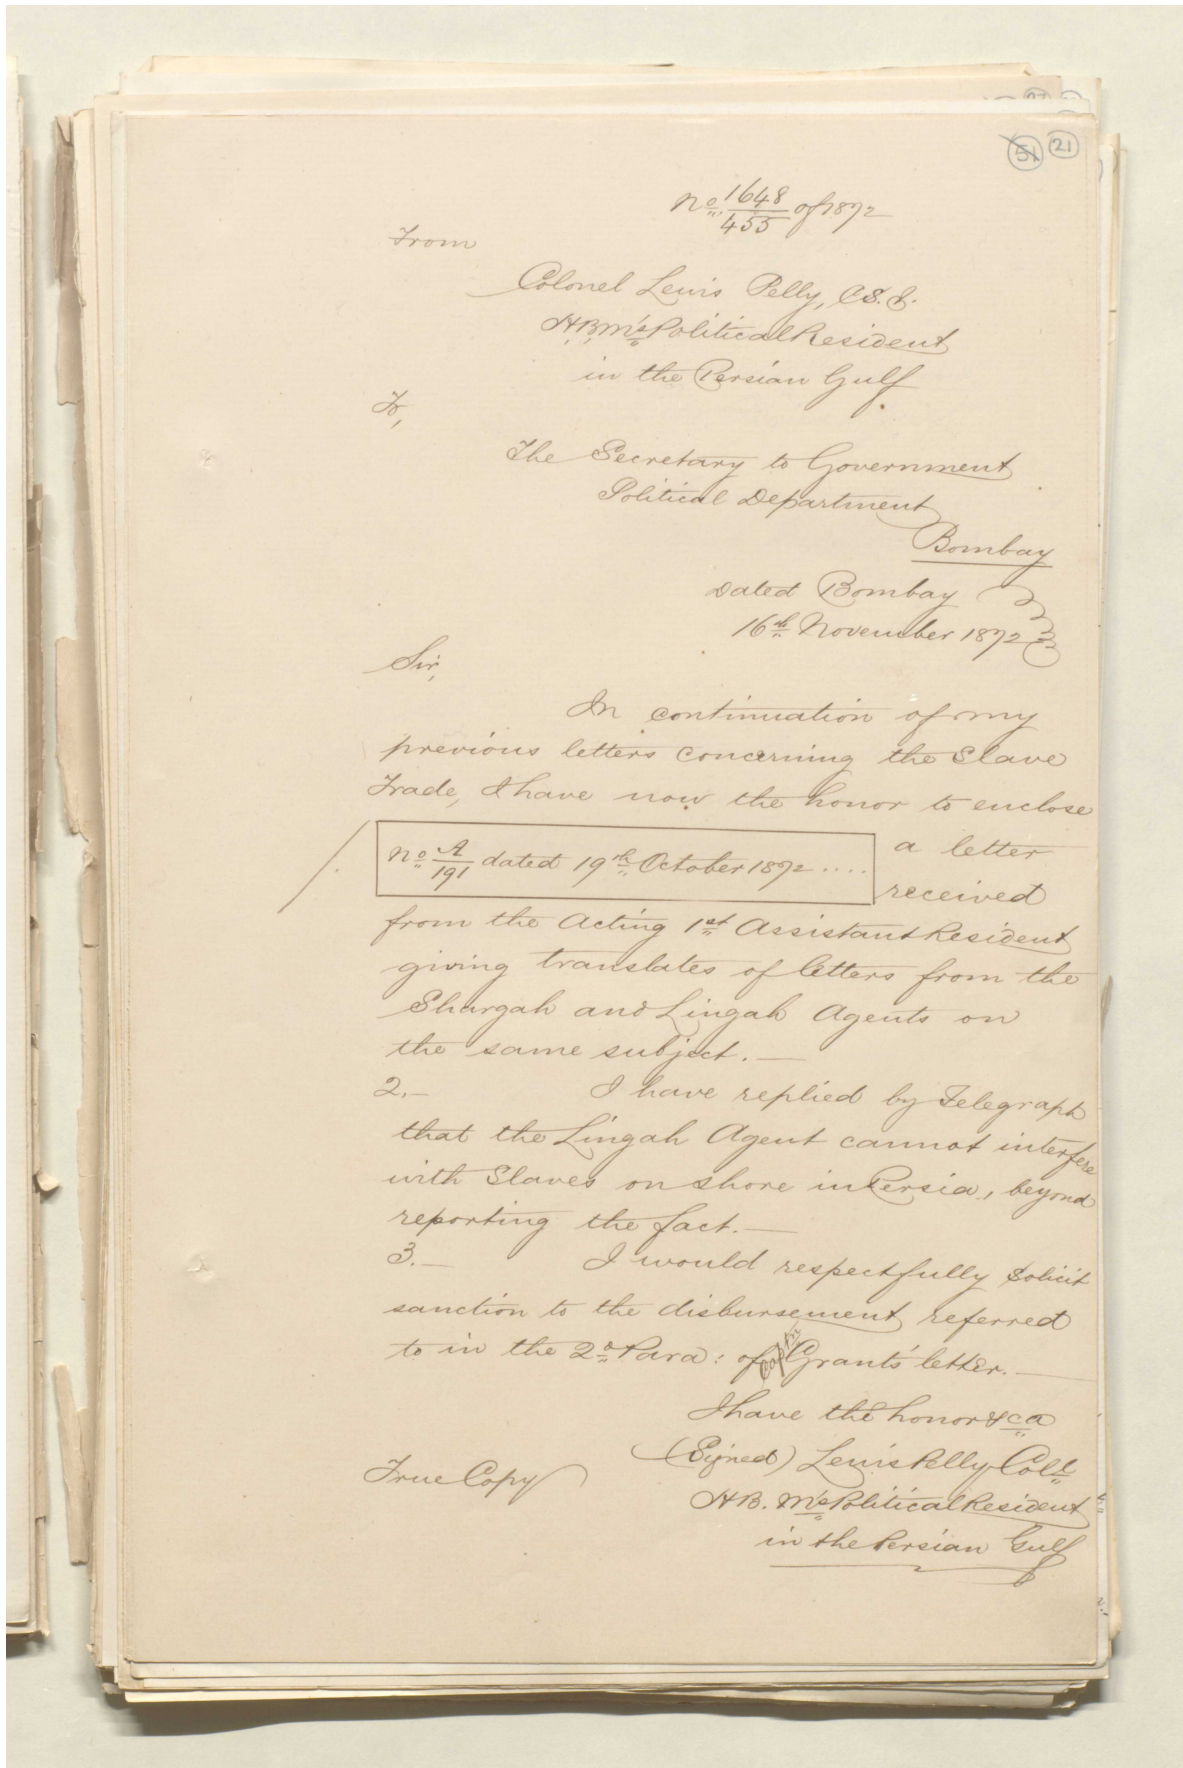 51 21
No 1648/455 of 1872
From
Colonel Lewis Pelly, C.S.I.
H.B.M's Political Resident
in the Persian Gulf
To,
The Secretary to Government
Political Department
Bombay
Dated Bombay
16th November 1872
Sir,
In continuation of my
previous letters concerning the Slave
Trade, I have now the honor to enclose
a letter
No A/191 dated 19th October 1872 ....
received
from the Acting 1st Assistant Resident
giving translates of letters from the
Shargah and Lingah Agents on
the same subject.—
2.— I have replied by Telegraph
that the Lingah Agent cannot interfere
with Slaves on shore in Persia, beyond
reporting the fact.—
3.— I would respectfully solicit
sanction to the disbursement referred
to in the 2d Para: of Captn Grant's letter.—
I have the honor &ca
(Signed) Lewis Pelly Coll
True Copy
H.B. M's Political Resident
in the Persian Gulf